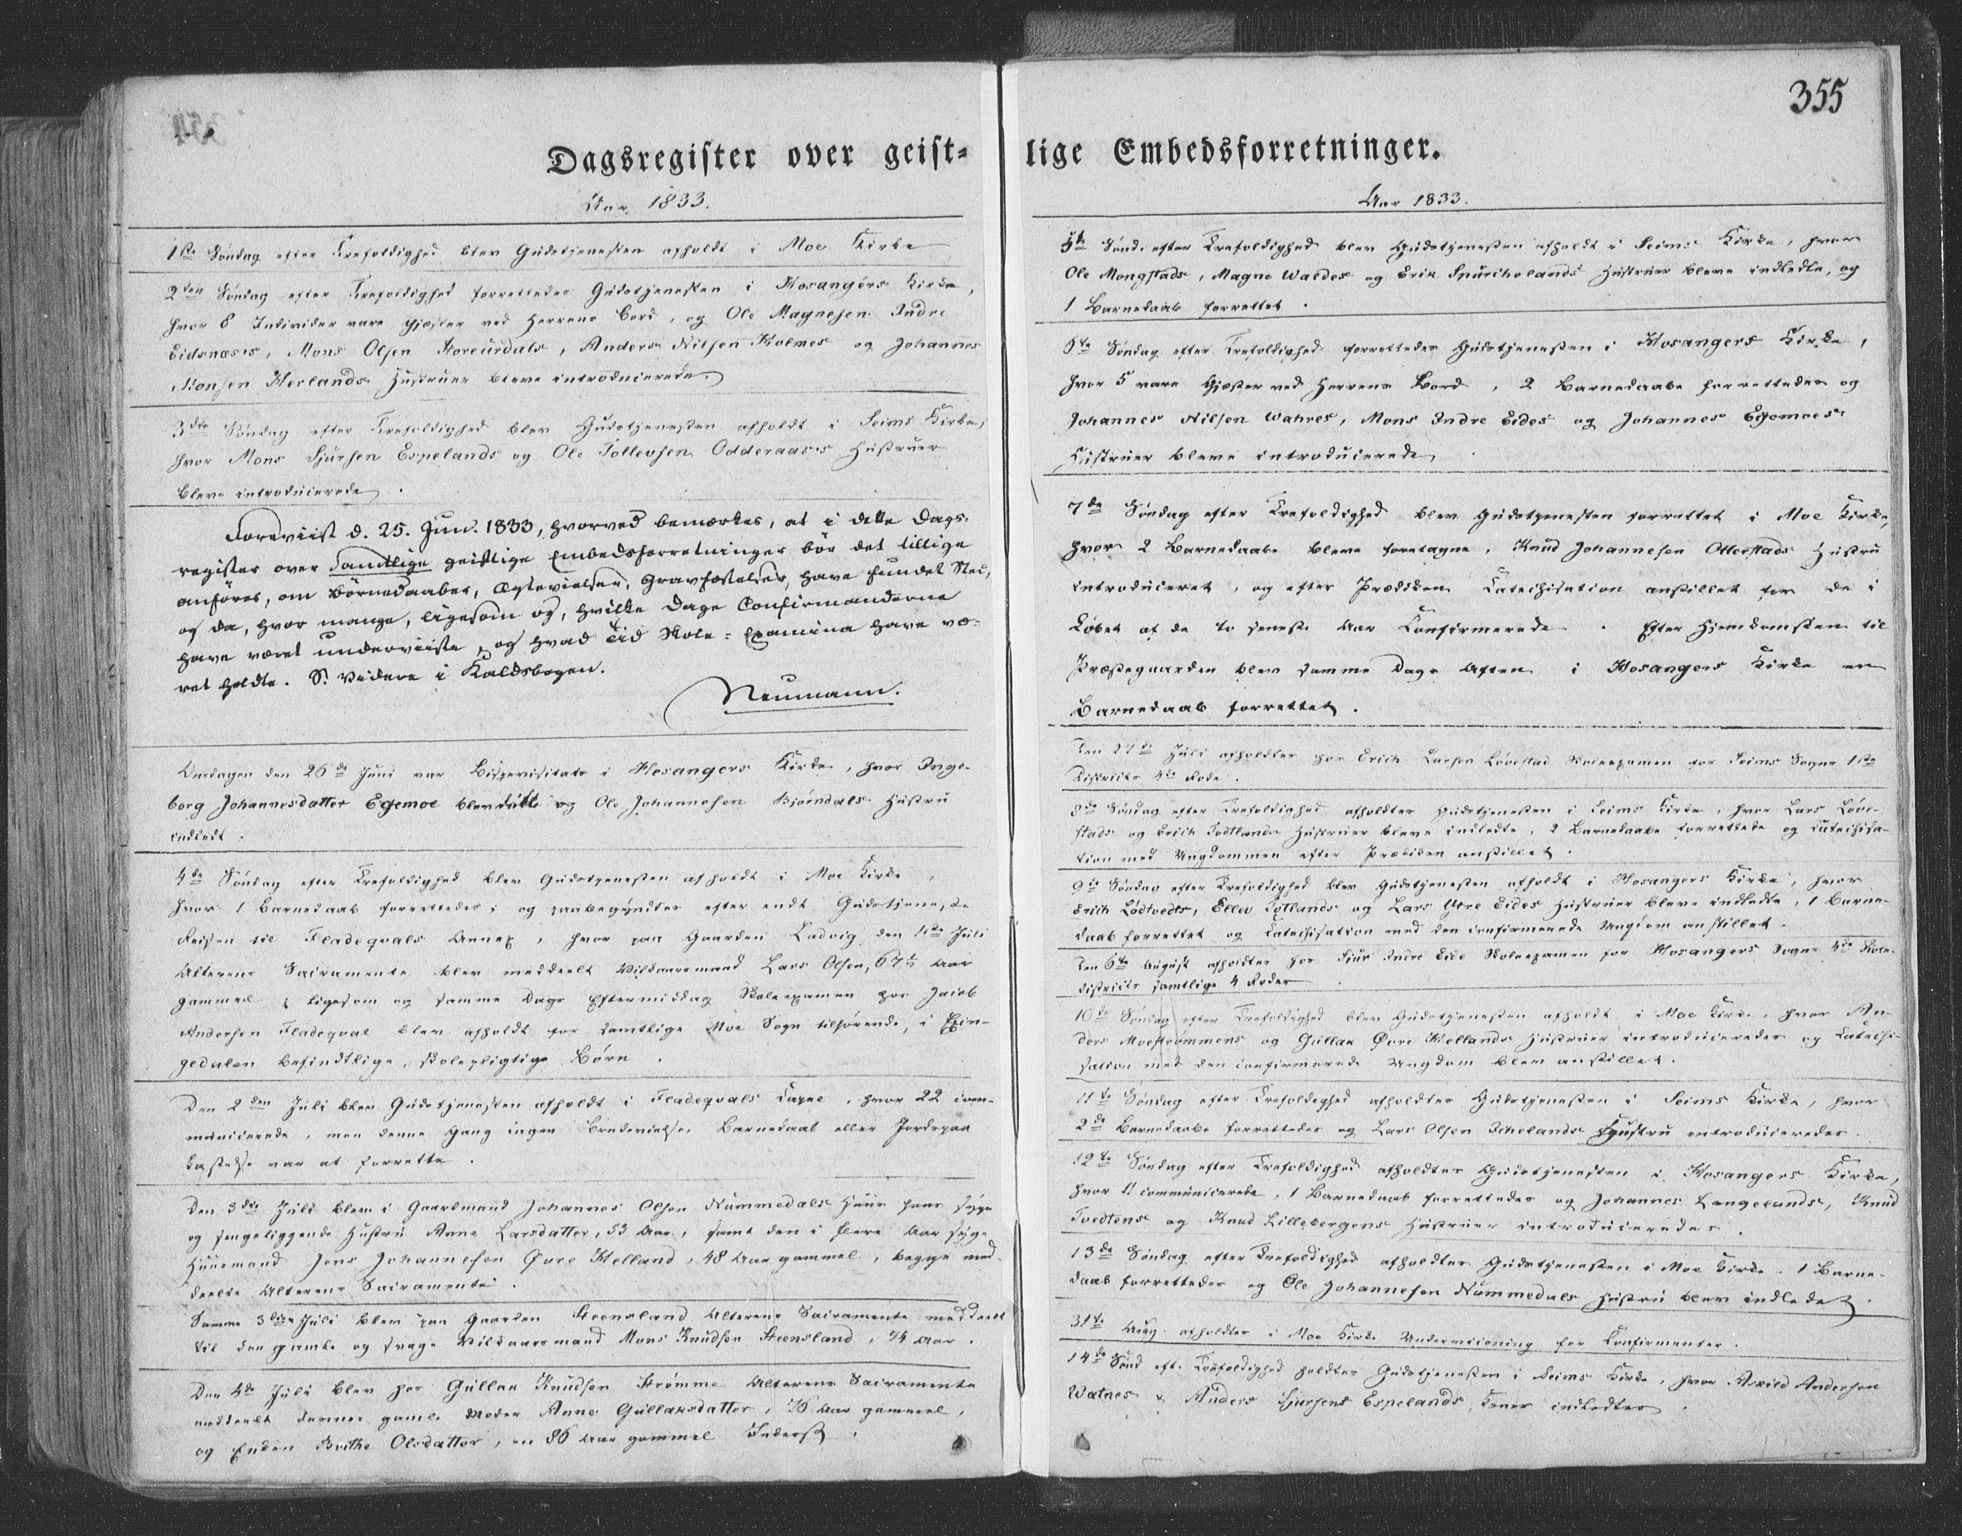 355
Dagsregister over geist-
Aar 1833.
1ste Søndag efter Trefoldighed blev Gudstjenesten afholdt i Moe Kirke
2den Søndag efter Trefoldighed forrettedes Gudstjenesten i Hosangers Kirke,
hvor 8 Individer vare Gjæster ved Herrens Bord, og Ole Magnesen Indre
Eidsnæs's, Mons Olsen Storeurdals, Anders Nilsen Holmes og Johannes
Monsen Herlands Hustruer bleve introducerede.
3die Søndag efter Trefoldighed blev Gudstjenesten afholdt i Seims Kirke,
hvor Mons Sjursen Espelands og Ole Tollevsen Odderaas's Hustruer
bleve introducerede.
Foreviist d. 25. Jun. 1833, hvorved bemærkes, at i dette Dags-
register over samtlige geistlige Embedsforretninger bör det tillige
anföres, om Börnedaaber, Ægtevielser, Gravfæstelser, have fundet Sted,
og da, hvor mange, ligesom og, hvilke Dage Confirmanderne
have været underviiste, og hvad Tid Skole-Examina have væ-
ret holdte. S. videre i Kaldsbogen.
Neumann.
Onsdagen den 26de Juni var Bispevisitats i Hosangers Kirke, hvor Inge-
borg Johannesdatter Egemoe blev og Ole Johannesen Bjørndals Hustru
indledt.
4de Søndag efter Trefoldighed blev Gudstjenesten afholdt i Moe Kirke,
hvor 1 Barnedaab forrettedes; og paabegyndtes efter endt Gudstjeneste
Reisen til Fladeqvals Annex, hvor paa Gaarden Ladvig den 1ste Juli
Alterens Sacramente blev meddeelt Vilkaarsmand Lars Olsen, 67½ Aar
gammel; ligesom og samme Dags Eftermiddag Skoleexamen hos Jacob
Andersen Fladeqval blev afholdt for samtlige Moe Sogn tilhørende, i Exin-
gedalen befindtlige, skolepligtige Børn.
Den 2den Juli blev Gudstjenesten afholdt i Fladeqvals Capel, hvor 22 com-
municerede, men denne Gang ingen Brudevielse, Barnedaab eller Jordspaa-
kastelse var at forrette.
Den 3die Juli blev i Gaardmand Johannes Olsen Nummedals Huus hans syge
og sengeliggende Hustru Anne Larsdatter, 53 Aar, samt den i flere Aar syge
Huusmand Jens Johannesen Øvre Helland, 48 Aar gammel, begge med-
deelte Alterens Sacramente.
Samme 3die Juli blev paa Gaarden Steensland Alterens Sacramente meddeelt
til den gamle og svage Vilkaarsmand Mons Knudsen Steensland, 74 Aar.
Den 4de Juli blev hos Gullak Knudsen Strømme Alterens Sacramente
meddeelt dennes gamle Moder Anne Gullaksdatter, 76 Aar gammel,
og Enken Brithe Olsdatter, en 86 Aar gammel Inderst.
lige Embedsforretninger.
Aar 1833.
5te Sønd. efter Trefoldighed blev Gudstjenesten afholdt i Seims Kirke, hvor
Ole Mongstads, Magne Waldes og Erik Hustruer bleve indledte, og
1 Barnedaab forrettet.
6te Søndag efter Trefoldighed forrettedes Gudstjenesten i Hosangers Kirke,
hvor 5 vare Gjæster ved Herrens Bord, 2 Barnedaabe forrettedes og
Johannes Nilsen Wahres, Mons Indre Eides og Johannes Egemoes
Hustruer bleve introducerede.
7de Søndag efter Trefoldighed blev Gudstjenesten forrettet i Moe Kirke,
hvor 2 Barnedaabe bleve foretagne, Knud Johannesen Otterstads Hustru
introduceret, og efter Prædiken Catechisation anstillet for de i
Løbet af de to seneste Aar Confirmerede. Efter Hjemkomsten til
Præstegaarden blev samme Dags Aften i Hosangers Kirke en
Barnedaab forrettet.
Den 27de Juli afholdtes hos Erich Larsen Løvestad Skoleexamen for Seims Sogns 1ste
Districts 4de Rode.
8de Søndag efter Trefoldighed afholdtes Gudstjenesten i Seims Kirke, hvor Lars Løve-
stads og Erich Todtlands Hustruer bleve indledte, 2 Barnedaabe forrettede og Catechisa-
tion med Ungdommen efter Prædiken anstillet.
9de Søndag efter Trefoldighed blev Gudstjenesten afholdt i Hosangers Kirke, hvor
Erich Lødtvedts, Ellev Totlands og Lars Ytre Eides Hustruer bleve indledte, 1 Barne-
daab forrettet og Catechisation med den confirmerede Ungdom anstillet.
Den 6te August afholdtes hos Sjur Indre Eide Skoleexamen for Hosangers Sogns 4de Skole-
districts samtlige 4 Roder
10de Søndag efter Trefoldighed blev Gudstjenesten afholdt i Moe Kirke, hvor An-
ders Moestrømmens og Gullak Øvre Hellands Hustruer introduceredes og Catechi-
sation med den confirmerede Ungdom blev anstillet.
11te Søndag efter Trefoldighed afholdtes Gudstjenesten i Seims Kirke, hvor
2de Barnedaabe forrettedes og Lars Olsen Hustru introduceredes.
12te Søndag efter Trefoldighed afholdtes Gudstjenesten i Hosangers Kirke,
hvor 11 communicerede, 1 Barnedaab forrettedes og Johannes Langelands, Knud
Tvedtens og Knud Lillebergens Hustruer introduceredes.
13de Søndag efter Trefoldighed afholdtes Gudstjenesten i Moe Kirke. 1 Barne-
daab forrettedes og Ole Johannesen Nummedals Hustru blev indledet.
31te Aug. afholdtes i Moe Kirke Underviisning for Confirmanter.
14de Sønd. eft. Trefoldighed holdtes Gudstjenesten i Seims Kirke, hvor Askild Andersen
Watnes og Anders Sjursens Espelands Koner indledtes.